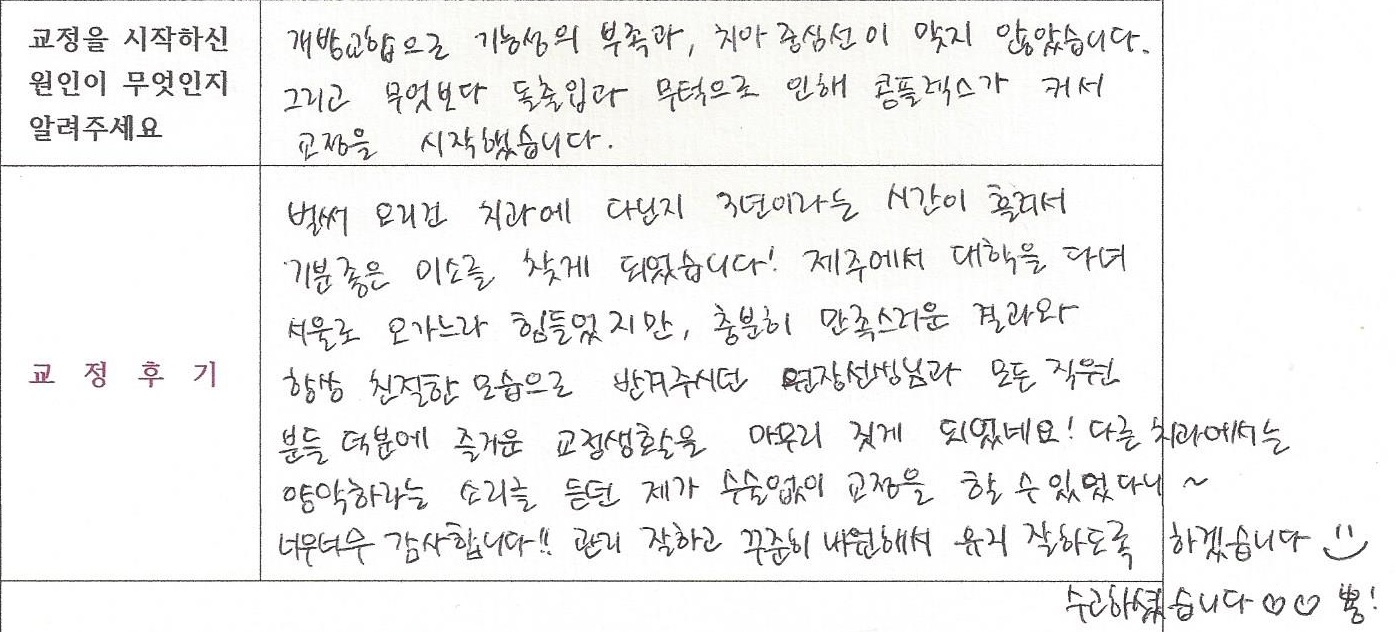 교정을 시작하신
원인이 무엇인지
알려주세요
개방교합으로 기능성의 부족과, 치아 중심선이 맞지 않았습니다.
그리고 무엇보다 돌출입과 무턱으로 인해 콤플렉스가 커서
교정을 시작했습니다.
교 정 후 기
벌써 요리건 치과에 다닌지 3년이라는 시간이 흘러서
기분좋은 미소를 찾게 되었습니다! 제주에서 대학을 다녀
서울로 오가느라 힘들었지만, 충분히 만족스러운 결과와
항상 친절한 모습으로 반겨주시던 원장선생님과 모든 직원
분들 덕분에 즐거운 교정생활을 마무리 짓게 되었네요! 다른 치과에서는
양악하라는 소리를 듣던 제가 수술없이 교정을 할 수 있었다니 ~
너무너무 감사합니다!! 관리 잘하고 꾸준히 내원해서 유지 잘하도록 하겠습니다
수고하셨습니다♡♡ 뿅!